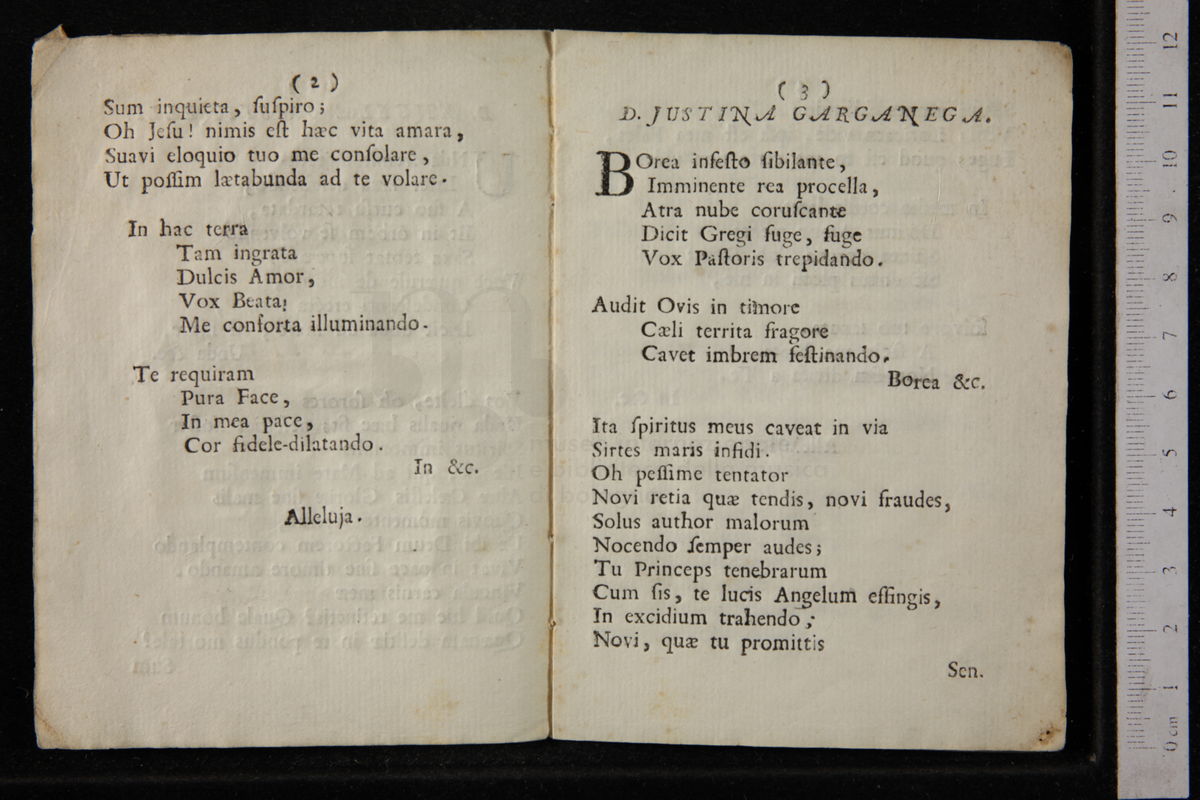 ( 2 )
Sum inquieta, ſuſpiro;
Oh Jeſu! nimis eſt hæc vita amara,
Suavi eloquio tuo me conſolare,
Ut poſſim lætabunda ad te volare.
In hac terra
Tam ingrata
Dulcis Amor,
Vox Beata;
Me conforta illuminando.
Te requiram
Pura Face,
In mea pace,
Cor fidele-dilatando.
In &c.
Alleluja.
( 3 )
D. JUSTINA GARGANEGA.
BOrea infeſto ſibilante,
Imminente rea procella,
Atra nube coruſcante
Dicit Gregi fuge, fuge
Vox Paſtoris trepidando.
Audit Ovis in timore
Cæli territa fragore
Cavet imbrem feſtinando.
Borea &c.
Ita ſpiritus meus caveat in via
Sirtes maris infidi.
Oh peſſime tentator
Novi retia quæ tendis, novi fraudes,
Solus author malorum
Nocendo ſemper audes;
Tu Princeps tenebrarum
Cum ſis, te lucis Angelum effingis,
In excidium trahendo;
Novi, quæ tu promittis
Sen.
0 cm 1 2 3 4 5 6 7 8 9 10 11 12